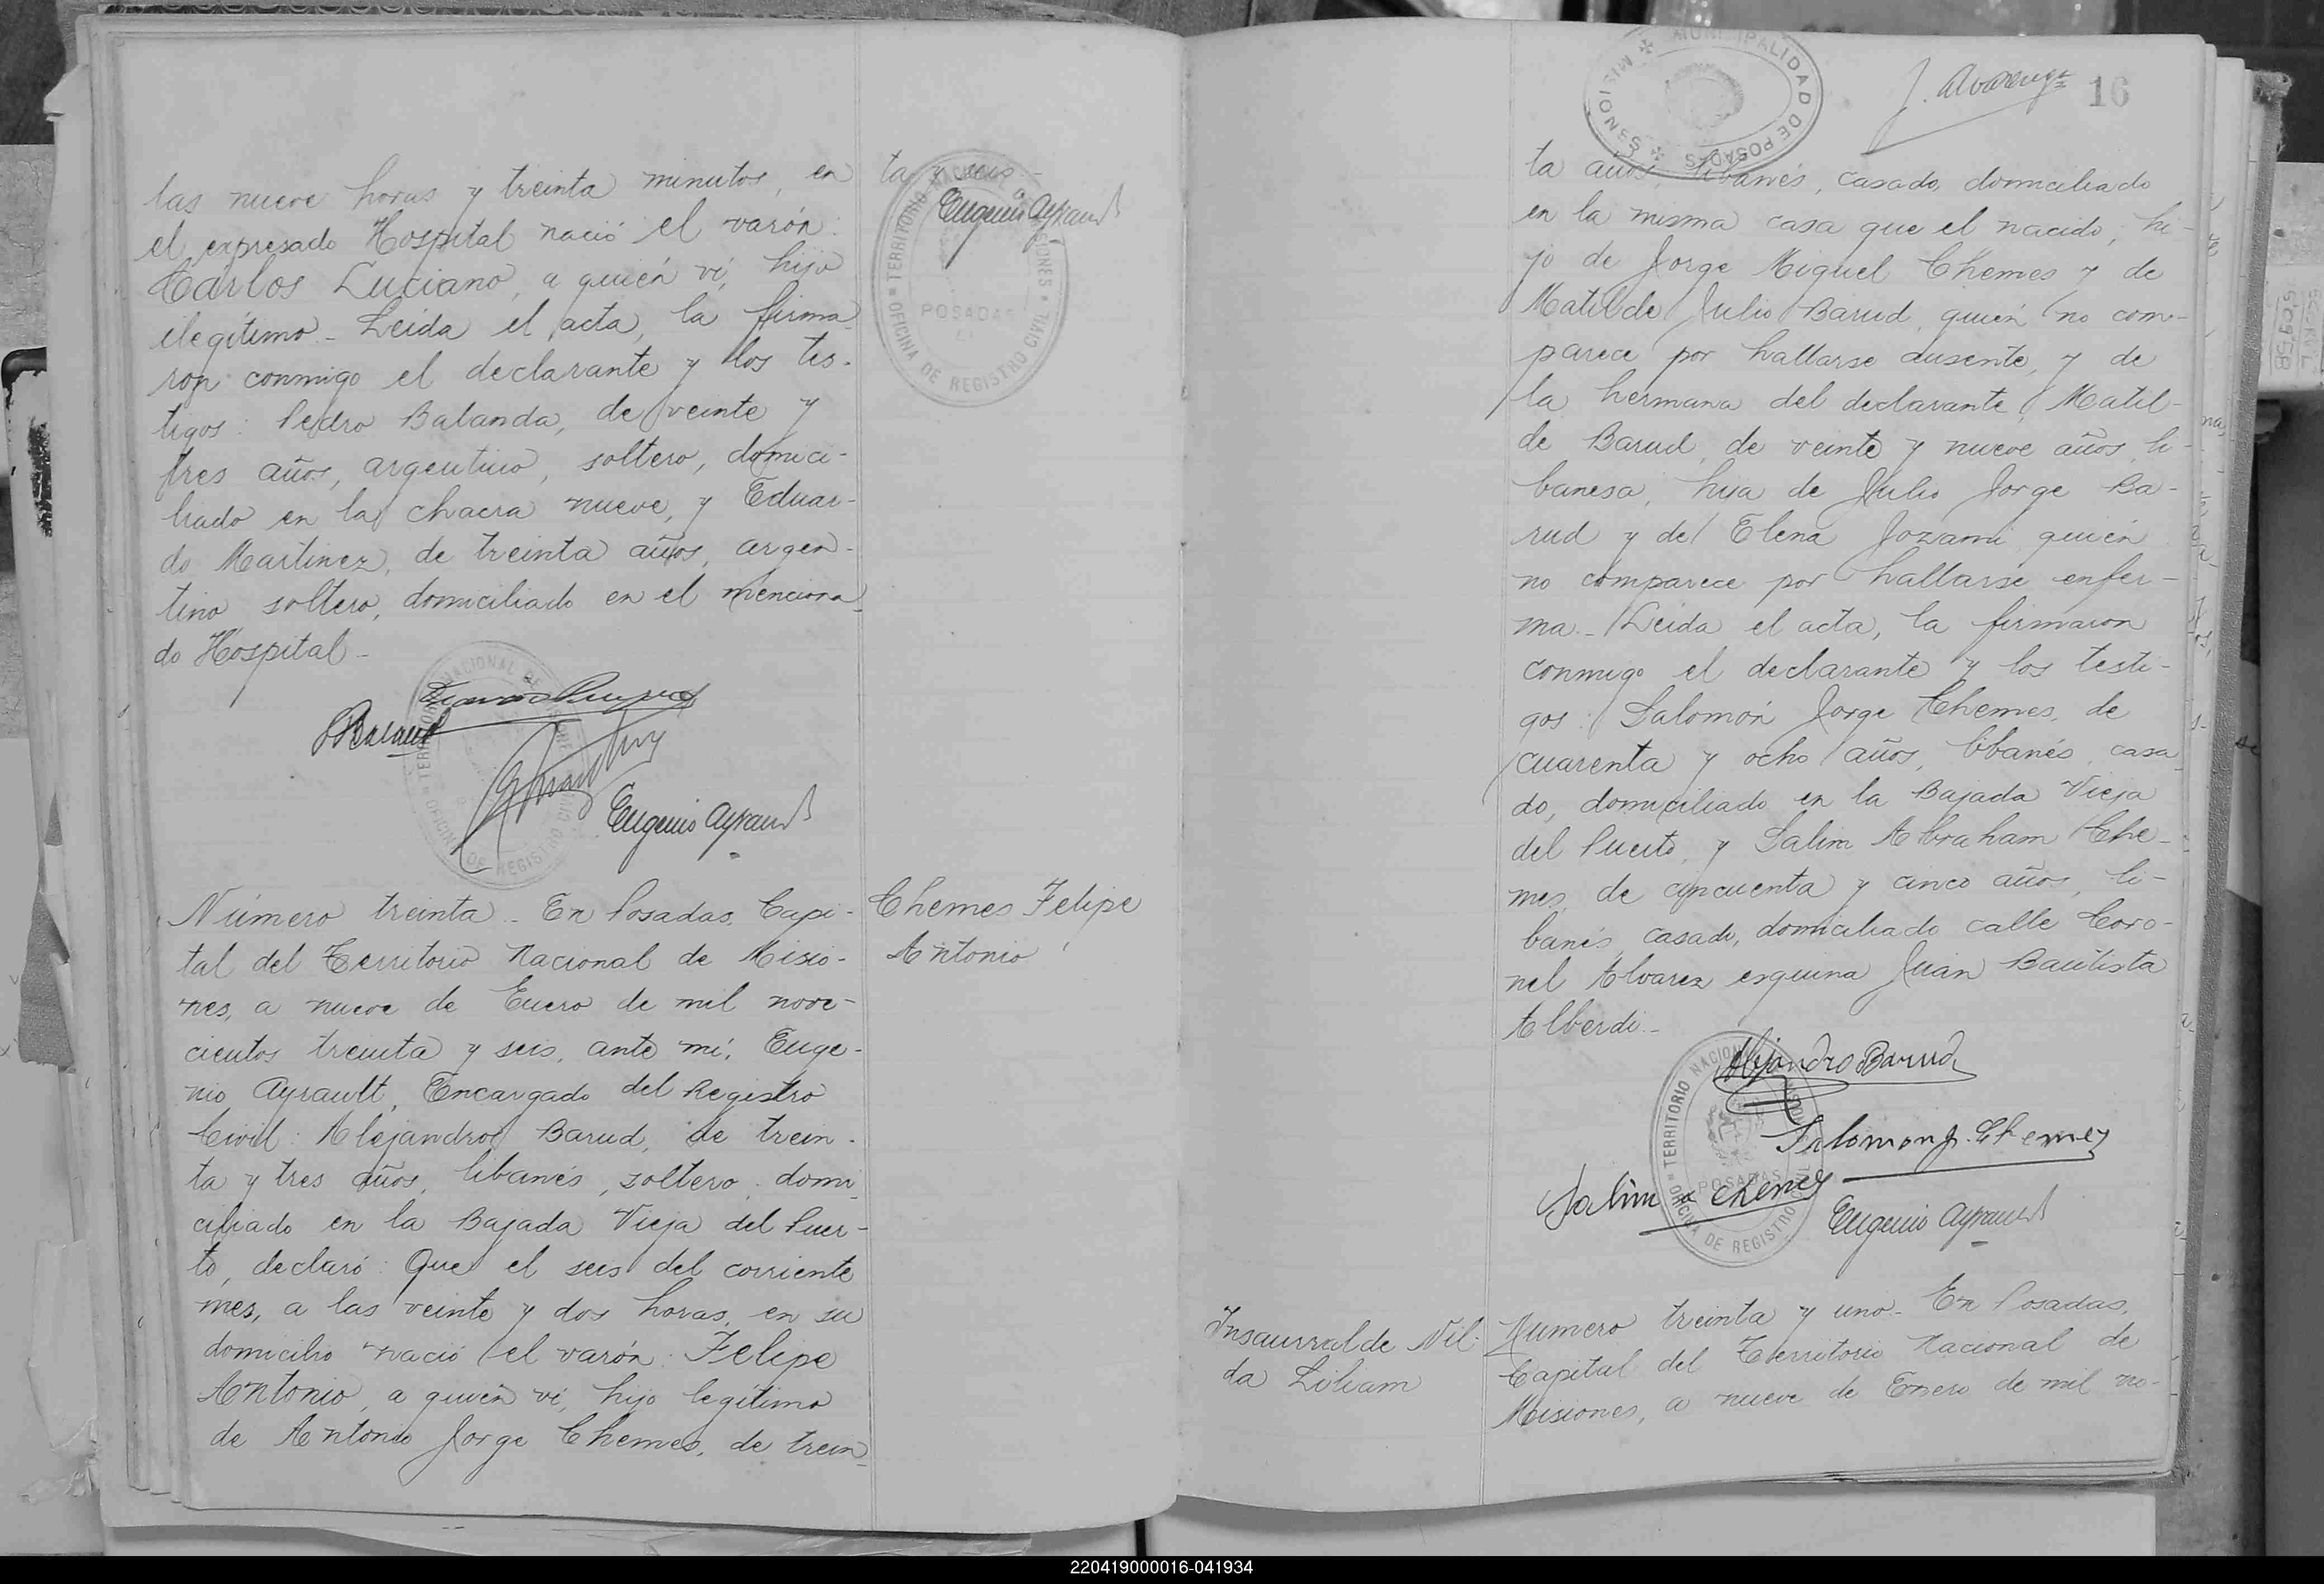 las nueve horas y treinta minutos, en
el expresado Hospital nació el varón:
Carlos Luciano, a quién ví, hijo
ilegítimo - Leida el acta, la firma
ron conmigo el declarante y los tes-
tigos: Pedro Balanda, de veinte y
tres años, argentino, soltero, domici-
liado en la chacra nueve, y Eduar-
do Martinez, de treinta años, argen-
tino soltero, domiciliado en el menciona
do Hospital -
Eugenio Ayrault
ta y seis -
Eugenio Ayrault
TERRITORIO NACIONAL DE MISIONES
POSADAS
OFICINA DE REGISTRO CIVIL
Chemes Felipe
Antonio
Número treinta - En Posadas, Capi-
tal del Territorio Nacional de Misio-
nes, a nueve de Enero de mil nove-
cientos treinta y seis, ante mí, Euge-
nio Ayrault, Encargado del Registro
Civil: Alejandro Barud, de trein-
ta y tres años, libanés, soltero, domi
ciliado en la Bajada Vieja del Puer-
to, declaró: Que el seis del corriente
mes, a las veinte y dos horas, en su
domicilio nació el varón: Felipe
Antonio, a quién ví, hijo legítimo
de Antonio Jorge Chemes, de trein
MUNICIPALIDAD DE POSADAS
MISIONES
J. Alvarenga
16
ta años, libanés, casado, domiciliado
en la misma casa que el nacido, hi-
jo de Jorge Miguel Chemes y de
Matilde Julio Barud, quién no com-
parece por hallarse ausente, y de
la hermana del declarante, Matil-
de Barud, de veinte y nueve años, li-
banesa, hija de Julio Jorge Ba-
rud y de Elena Jozami, quién
no comparece por hallarse enfer-
ma - Leida el acta, la firmaron
conmigo el declarante y los testi-
gos: Salomón Jorge Chemes, de
cuarenta y ocho años, libanés, casa
do, domiciliado en la Bajada Vieja
del Puerto, y Salim Abraham Che-
mes, de cincuenta y cinco años, li-
banés, casado, domiciliado calle Coro-
nel Alvarez esquina Juan Bautista
Alberdi -
Alejandro Barud
Salomon J. Chemes
Salim A Chemes
Eugenio Ayrault
TERRITORIO NACIONAL DE MISIONES
POSADAS
OFICINA DE REGISTRO CIVIL
Insaurralde Nil-
da Liliam
Numero treinta y uno - En Posadas,
Capital del Territorio Nacional de
Misiones, a nueve de Enero de mil no-
220419000016-041934